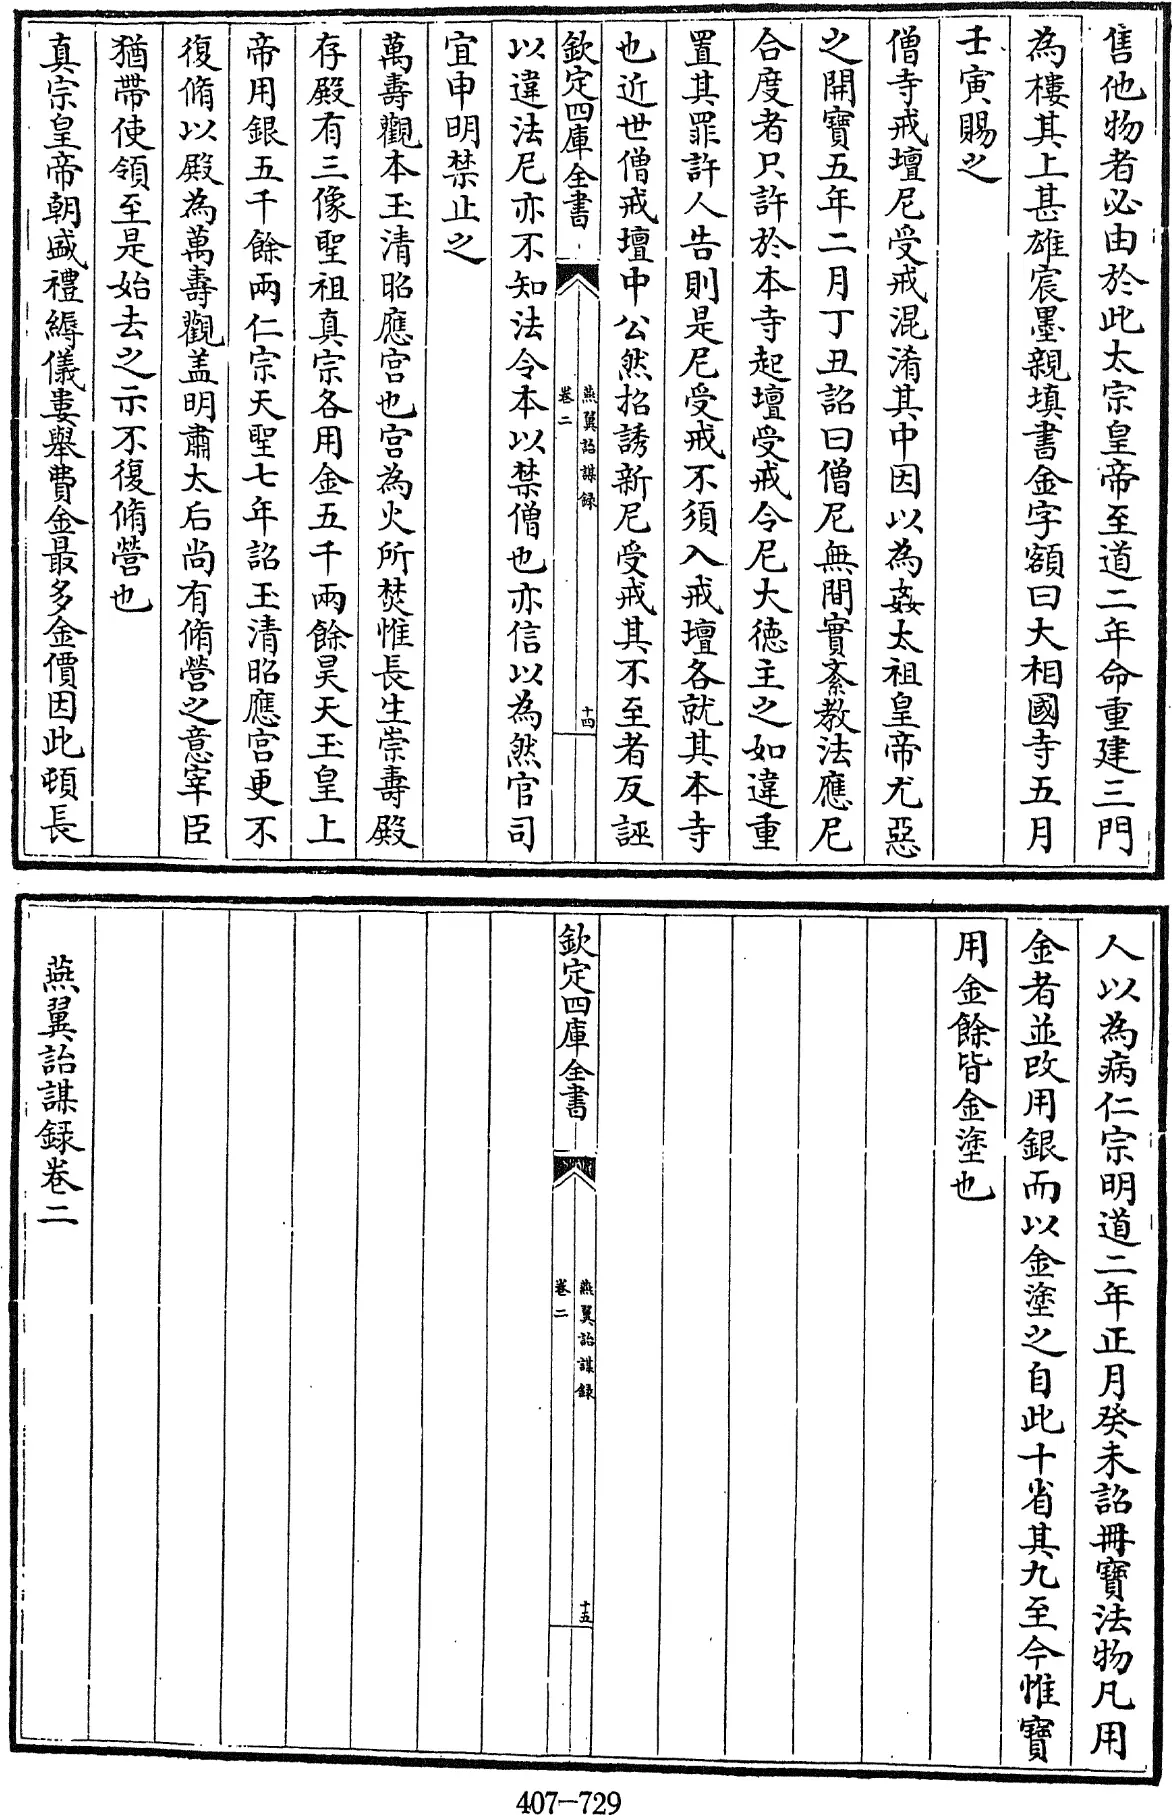 售他物者必由於此太宗皇帝至道二年命重建三門
為樓其上甚雄宸墨親填書金字額曰大相國寺五月
壬寅賜之
僧寺戒壇尼受戒混淆其中因以為姦太祖皇帝尤惡
之開寶五年二月丁丑詔曰僧尼無間實紊教法應尼
合度者只許於本寺起壇受戒令尼大德主之如違重
置其罪許人告則是尼受戒不須入戒壇各就其本寺
也近世僧戒壇中公然招誘新尼受戒其不至者反誣
欽定四庫全書
燕翼詒謀録
卷二
十四
以違法尼亦不知法令本以禁僧也亦信以為然官司
宜申明禁止之
萬壽觀本玉清昭應宮也宮為火所焚惟長生崇壽殿
存殿有三像聖祖真宗各用金五千兩餘昊天玉皇上
帝用銀五千餘兩仁宗天聖七年詔玉清昭應宮更不
復脩以殿為萬壽觀盖明肅太后尚有脩營之意宰臣
猶帶使領至是始去之示不復脩營也
真宗皇帝朝盛禮縟儀婁舉費金最多金價因此頓長
人以為病仁宗明道二年正月癸未詔冊寶法物凡用
金者並改用銀而以金塗之自此十省其九至今惟寶
用金餘皆金塗也
欽定四庫全書
燕翼詒謀録
卷二
十五
燕翼詒謀録卷二
407-729